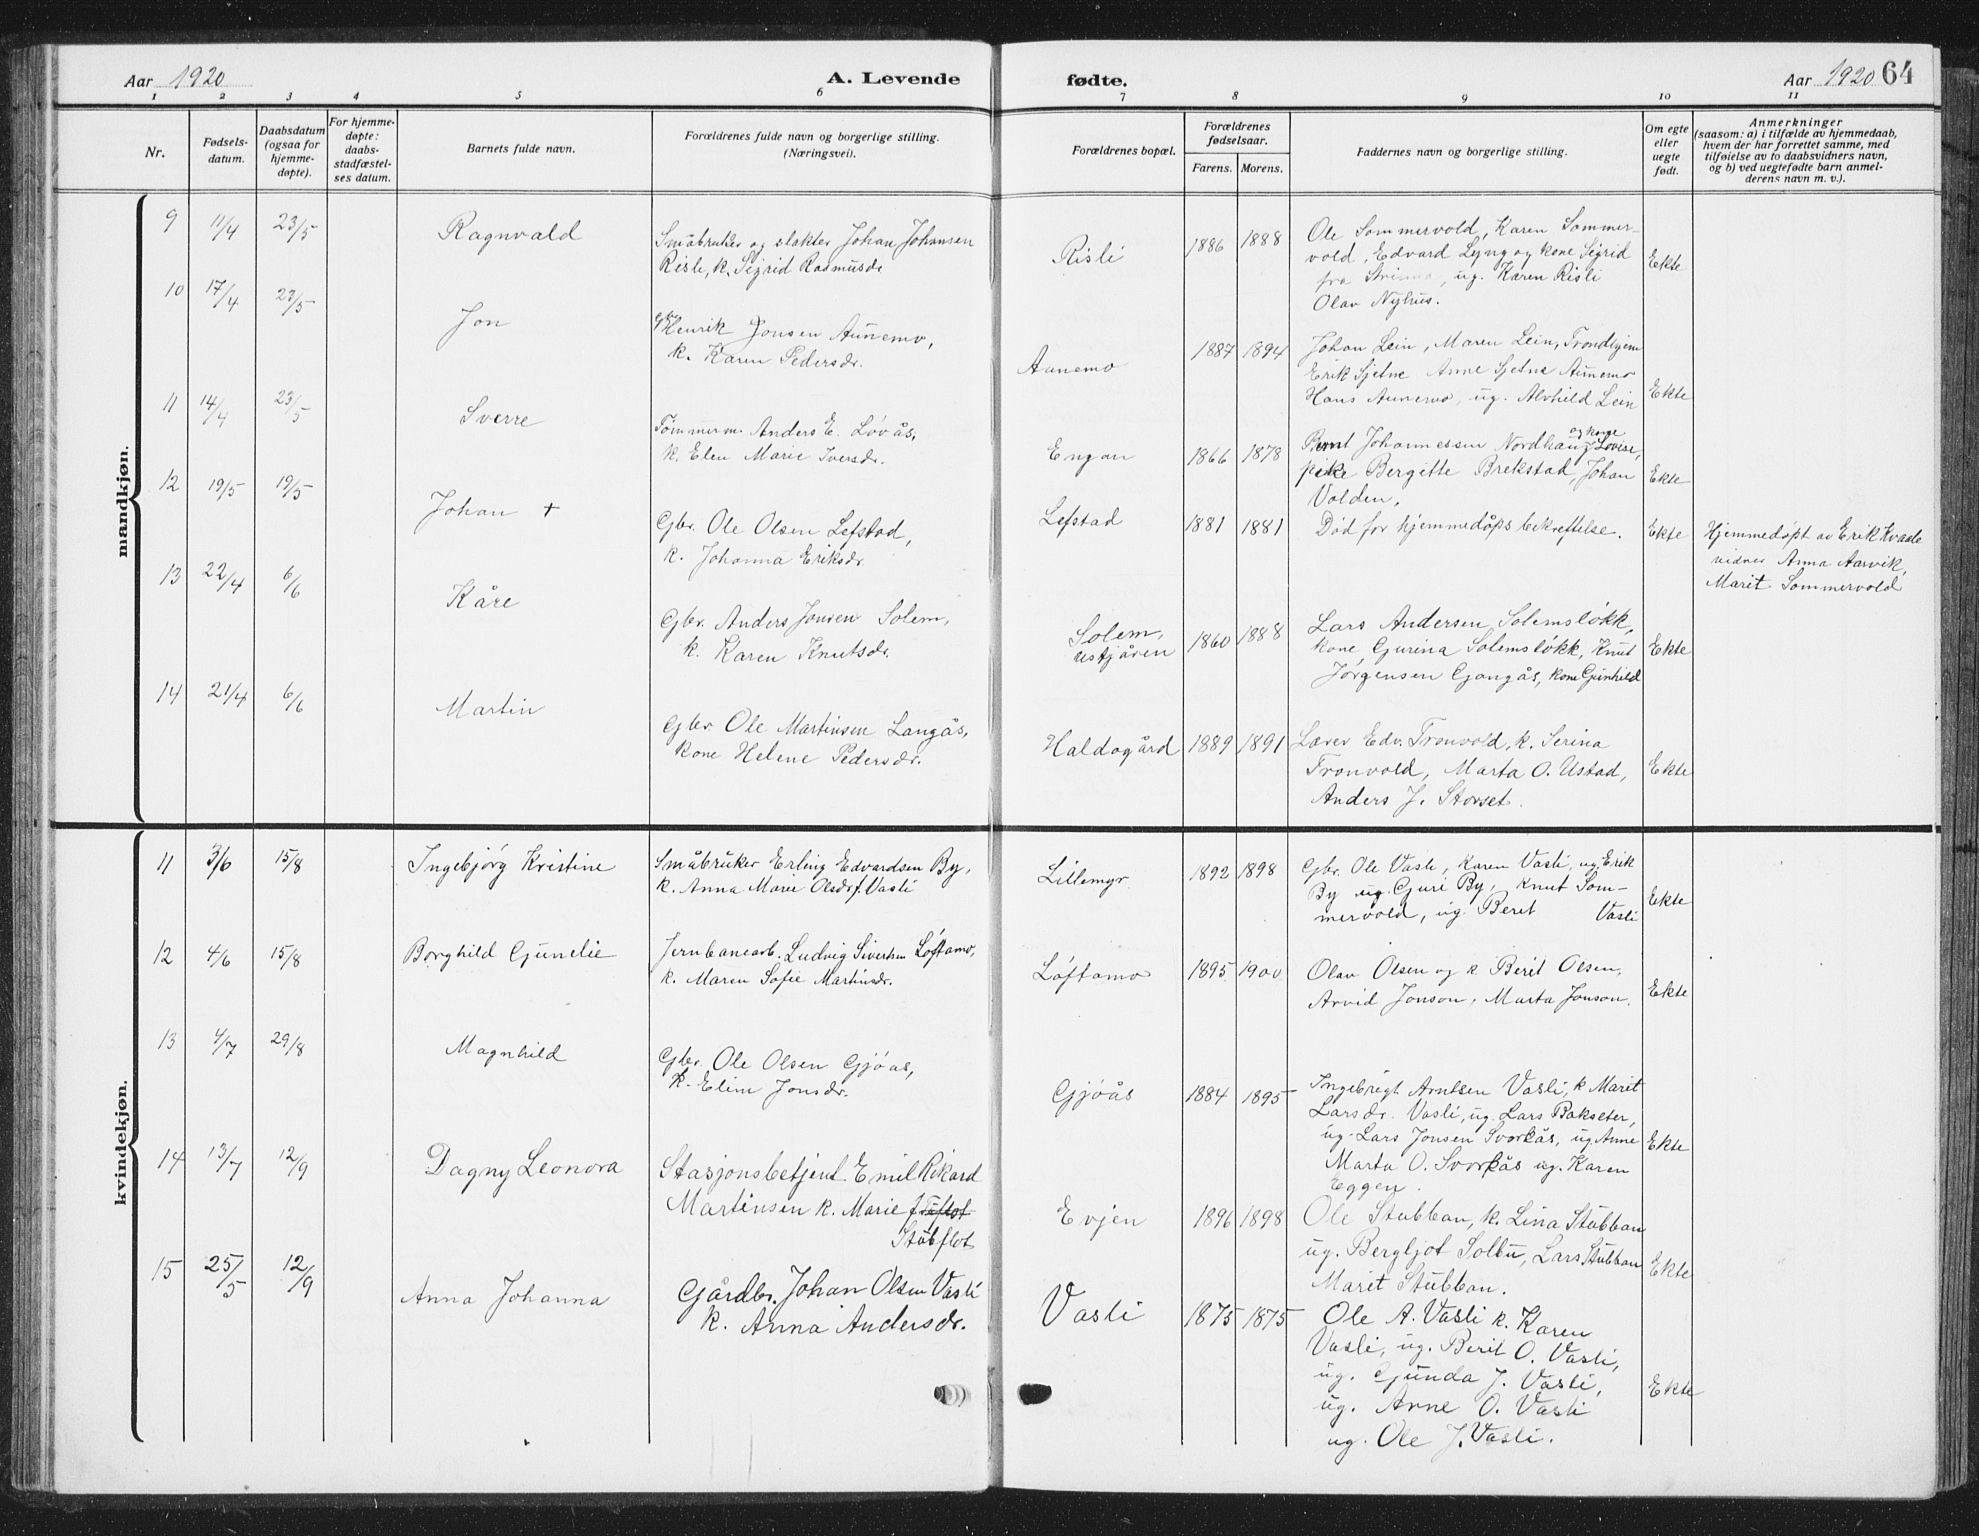 Aar 1920
A. Levende
fødte.
Aar 1920 64
1 2 3 4 5 6 7 8 9 10 11
Nr.
Fødsels-
datum.
Daabsdatum
(ogsaa for
hjemme-
døpte).
For hjemme-
døpte:
daabs-
stadfæstel-
ses datum.
Barnets fulde navn.
Forældrenes fulde navn og borgerlige stilling.
(Næringsvei).
Forældrenes bopæl.
Forældrenes
fødselsaar.
Farens. Morens.
Faddernes navn og borgerlige stilling.
Om egte
eller
uegte
født.
Anmerkninger
(saasom: a) i tilfælde av hjemmedaab,
hvem der har forrettet samme, med
tilføielse av to daabsvidners navn,
og b) ved uegtefødte barn anmel-
derens navn m. v.).
mandkjøn.
9 11/4 23/5 Ragnvald
Småbruker og slakter Johan Johansen
Risli, k. Sigrid Rasmusdr
Risli 1886 1888
Ole Sommervold, Karen Sommer-
vold, Edvard Lyng og kone Sigrid
fra Strinna, ug. Karen Risli
Olav Nyhus.
Ekte
10 17/4 23/5 Jon
Henrik Jonsen Aunemo,
k. Karen Pedersdr.
Aunemo 1887 1894
Johan Lein, Maren Lein, Trondhjem
Erik Sjetne Anne Sjetne Aunemo
Hans Aunemo, ug. Alvhild Lein
Ekte
11 14/4 23/5 Sverre
Tømmerm. Anders E. Løvås,
k. Elen Marie Iversdr.
Engan 1866 1878
Bernt Johannessen Nordhaug og kone Lovise,
pike Bergitte Brekstad, Johan
Volden.
Ekte
12 19/5 19/5 Johan +
Gbr. Ole Olsen Lefstad,
k. Johanna Eriksdr.
Lefstad 1881 1881
Død før hjemmedåps bekreftelse.
Ekte
Hjemmedøpt av Erik Kvaale
vidner Anna Aarvik,
Marit Sommervold
13 22/4 6/6 Kåre
Gbr. Anders Jonsen Solem,
k. Karen Knutsdr.
Solem,
Ustjåren 1860 1888
Lars Andersen Solemsløkk,
kone Gjurina Solemsløkk, Knut
Jørgensen Gangås, kone Gunhild
Ekte
14 21/4 6/6 Martin
Gbr. Ole Martinsen Langås,
kone Helene Pedersdr.
Haldogård 1889 1891
Lærer Edv. Tronvold, k. Serina
Tronvold, Marta O. Ustad,
Anders J. Storset.
Ekte
kvindekjøn.
11 3/6 15/8 Ingebjørg Kristine
Småbruker Erling Edvardsen By,
k. Anna Marie Olsdr f. Vasli
Lillemyr 1892 1898
Gbr. Ole Vasli, Karen Vasli, ug. Erik
By ug. Guri By, Knut Som-
mervold, ug. Beret Vasli
Ekte
12 4/6 15/8 Borghild Gunelie
Jernbanearb. Ludvig Sivertsen Løftamo,
k. Maren Sofie Martinsdr.
Løftamo 1895 1900
Olav Olsen og k. Berit Olsen,
Arvid Jonson, Marta Jonson.
Ekte
13 4/7 29/8 Magnhild
Gbr. Ole Olsen Gjøås,
k. Elim Jonsdr.
Gjøås 1884 1895
Ingebrigt Arntsen Vasli, k Marit
Larsdr. Vasli, ug. Lars Bakseter,
ug. Lars Jonsen Svorkås, ug Anne
Marta O. Svorkås ug. Karen
Eggen.
Ekte
14 13/7 12/9 Dagny Leonora
Stasjonsbetjent Emil Rikard
Martinsen k. Marie f.
Stubflot
Evjen 1896 1898
Ole Stubban, k. Lina Stubban
ug. Bergljot Solbu, Lars Stubban
Marit Stubban.
Ekte
15 25/5 12/9 Anna Johanna
Gårdbr. Johan Olsen Vasli
k. Anna Andersdr.
Vasli 1875 1875
Ole A. Vasli k. Karen
Vasli, ug. Berit O. Vasli,
ug. Gunda J. Vasli,
ug. Arne O. Vasli
ug. Ole J. Vasli.
Ekte